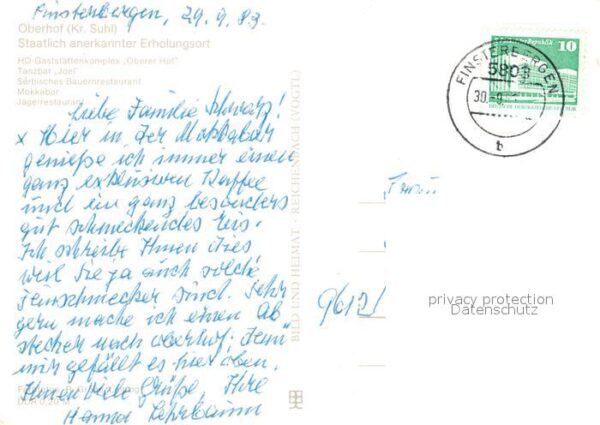 Finsterbergen, 29.9.83
Oberhof (Kr. Suhl)
Staatlich anerkannter Erholungsort
HO-Gaststättenkomplex „Oberer Hof"
Tanzbar „Joel"
Serbisches Bauernrestaurant
Mokkabar
Jägerrestaurant
Liebe Familie Schwarz!
x Hier in der Mokkabar
genieße ich immer einen
ganz exklusiven Kaffee
und ein ganz besonders
gut schmeckendes Eis.
Ich schreibe Ihnen dies,
weil Sie ja auch solche
Feinschmecker sind. Sehr
gern mache ich einen Ab
stecher nach Oberhof, denn
mir gefällt es hier oben.
Ihnen viele Grüße, Ihre
Hanna
DDR 0,20 M
BILD UND HEIMAT · REICHENBACH (VOGTL)
FINSTERBERGEN
5803
30.-9.
b
10
Frau
9612
privacy protection
Datenschutz